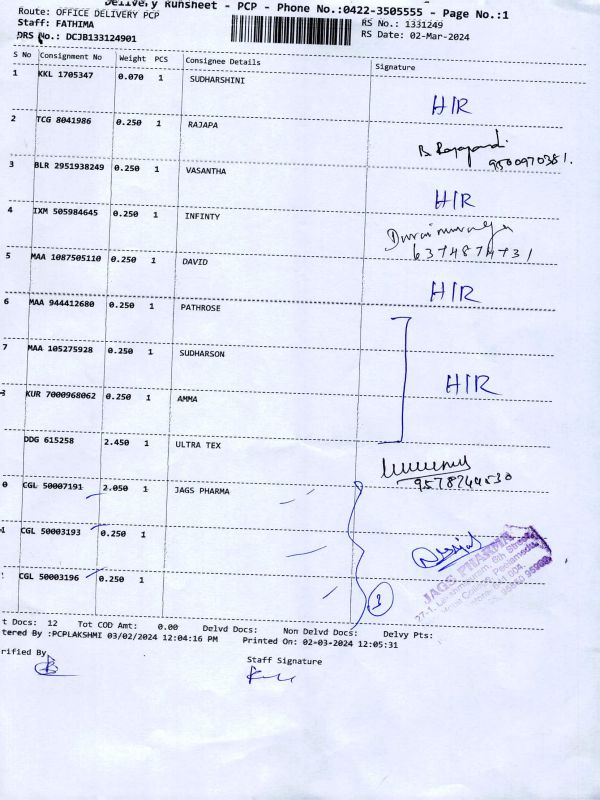 Delivery Runsheet - PCP - Phone No.:0422-3505555 - Page No.:1
Route: OFFICE DELIVERY PCP
RS No.: 1331249
Staff: FATHIMA
RS Date: 02-Mar-2024
DRS No.: DCJB133124901
S No Consignment No Weight PCS Consignee Details Signature
1 KKL 1705347 0.070 1 SUDHARSHINI H/R
2 TCG 8041986 0.250 1 RAJAPA
9500970381.
3 BLR 2951938249 0.250 1 VASANTHA H/R
4 IXM 505984645 0.250 1 INFINTY
6374874731
5 MAA 1087505110 0.250 1 DAVID H/R
6 MAA 944412680 0.250 1 PATHROSE
7 MAA 105275928 0.250 1 SUDHARSON
H/R
KUR 7000968062 0.250 1 AMMA
DDG 615258 2.450 1 ULTRA TEX
9578744530
0 CGL 50007191 2.050 1 JAGS PHARMA
1 CGL 50003193 0.250 1
JAGS PHARMA
CGL 50003196 0.250 1
3
t Docs: 12 Tot COD Amt: 0.00 Delvd Docs: Non Delvd Docs: Delvy Pts:
tered By :PCPLAKSHMI 03/02/2024 12:04:16 PM Printed On: 02-03-2024 12:05:31
rified By
Staff Signature